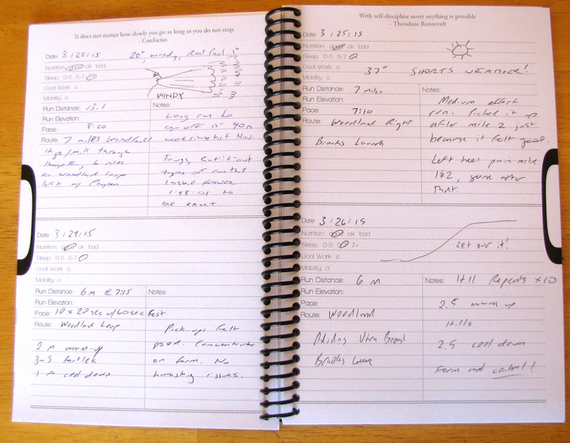 It does not matter how slowly you go as long as you do not stop.
- Confucius
Date 3/22/15
20°, windy, Real Feel
Nutrition: good ok bad
Sleep: 0-5 5-7 7+
Goal Work
Mobility
WINDY
Run Distance: 13.1
Notes:
Run Elevation:
Long run to
Pace: 8:20
Route: 7 miles Woodland
through
6 miles
on Woodland loop
Tough, but
type of
1:48
be exact.
Date 3/24/15
Nutrition: good ok bad
Sleep: 0-5 5-7 7+
Goal Work
Mobility
Run Distance: 6m @ 7:55
Notes:
Run Elevation:
Pace: 10 x 20 sec w/ 60 sec Fast
Route: Woodland Loop
Pick-ups felt
2 m warm-up
good. Concentrated
3m fartlek
on form. No
1m cool down
breathing issues.
With self-discipline most anything is possible
- Theodore Roosevelt
Date 3/25/15
Nutrition: good ok bad
Sleep: 0-5 5-7 7+
Goal Work
37° SHORTS WEATHER!
Mobility
Run Distance: 7 miles
Notes:
Run Elevation:
Medium effort
Pace: 7:10
run. Picked it up
Route: Woodland Right
after mile 2 just
Brooks Launch
because it felt good.
Left heel pain mile
1&2, gone after
that
Date 3/26/15
Nutrition: good ok bad
Sleep: 0-5 5-7 7+
Goal Work
Mobility
Run Distance: 6m
Notes: Hill Repeats x10
Run Elevation:
Pace:
2.5 warm up
Route: Woodland
Hills
Adidas Ultra Boost
2.5 cool down
Brooks
Form and